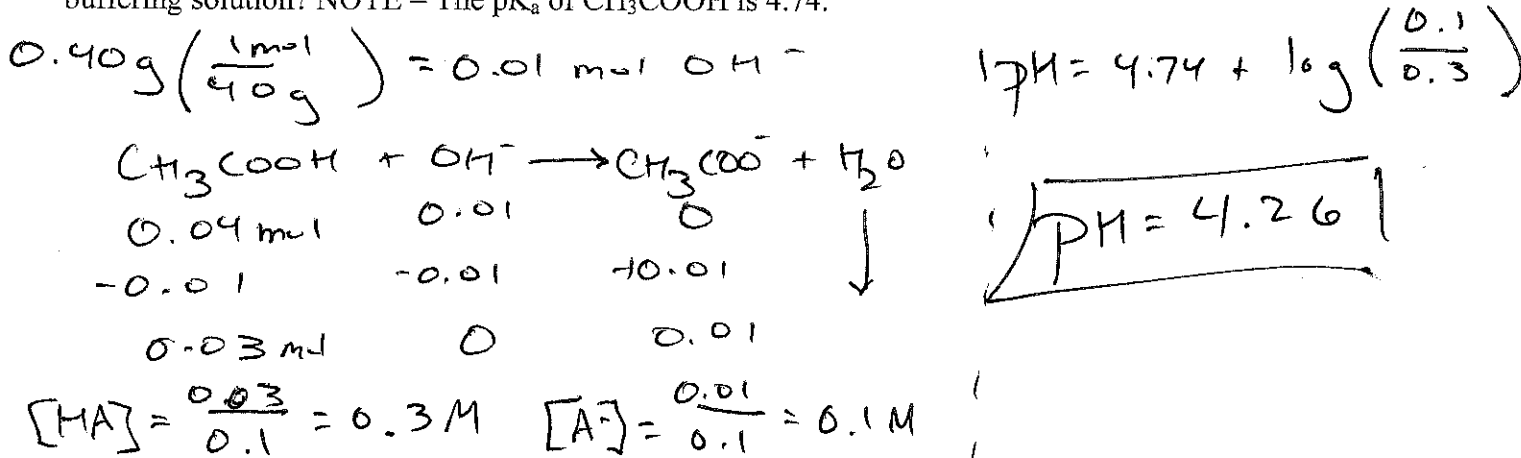 buffering solution? NOTE – The pKₐ of CH₃COOH is 4.74.
0.40g (1mol / 40g) = 0.01 mol OH⁻
CH₃COOH + OH⁻ → CH₃COO⁻ + H₂O
0.04 mol 0.01 0 ↓
-0.01 -0.01 +0.01
0.03 mol 0 0.01
[HA] = 0.03/0.1 = 0.3 M [A⁻] = 0.01/0.1 = 0.1 M
pH = 4.74 + log (0.1/0.3)
pH = 4.26